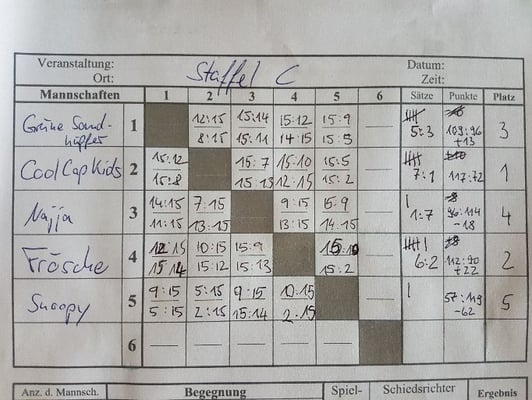 Veranstaltung: Datum:
Ort: Staffel C Zeit:
Mannschaften 1 2 3 4 5 6 Sätze Punkte Platz
Grüne Sand- 1 12:15 15:14 15:12 15:9 — 5:3 109:96 3
hüpfer 8:15 15:11 14:15 15:5 +13
CoolCapKids 2 15:12 15:7 15:10 15:5 — 7:1 117:72 1
15:8 15:13 12:15 15:2
Najja 3 14:15 7:15 9:15 15:9 — 1:7 96:114 4
11:15 13:15 13:15 14:15 -18
Frösche 4 12:15 10:15 15:9 15:10 — 6:2 112:90 2
15:14 15:12 15:13 15:2 +22
Snoopy 5 9:15 5:15 9:15 10:15 — 57:119 5
5:15 2:15 15:14 2:15 -62
6 — — — — —
Anz. d. Mannsch. Begegnung Spiel- Schiedsrichter Ergebnis